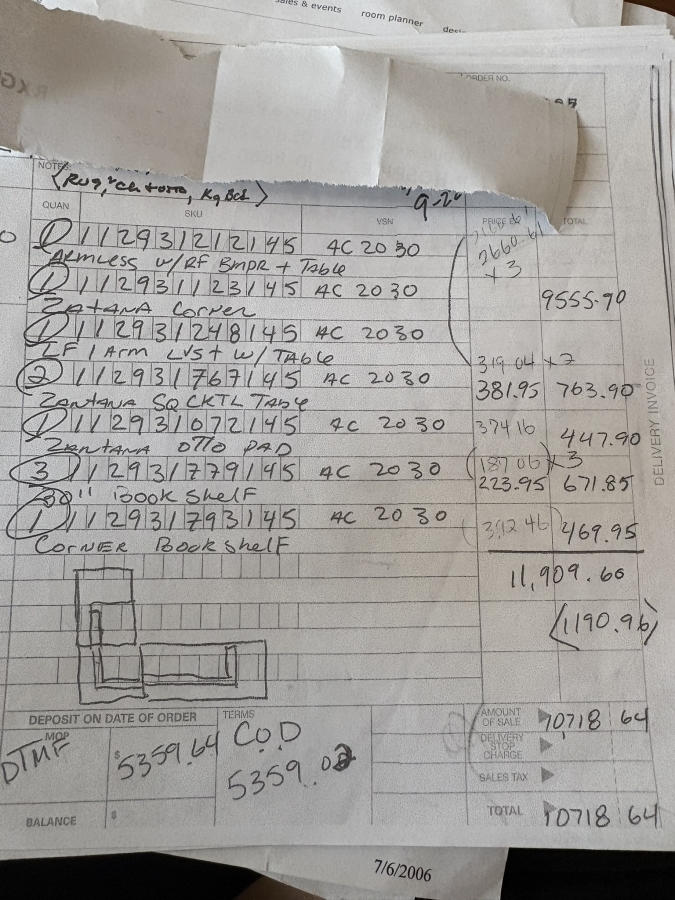 sales & events room planner
ORDER NO.
NOTES:
QUAN SKU VSN PRICE EA TOTAL
1 112931212145 AC 2030
2660.61
ARMLESS W/RF BMPR + TABLE
x 3
1 112931123145 AC 2030 9555.90
ZANTANA CORNER
1 112931248145 AC 2030
LF 1 ARM LVST W/TABLE 319 04 x 2
2 112931767145 AC 2030 381.95 763.90
ZANTANA SQ CKTL TABLE
1 112931072145 AC 2030 374 16 447.90
ZANTANA OTTO PAD
3 112931779145 AC 2030 (187 06) x 3
223.95 671.85
30" BOOK SHELF
1 112931793145 AC 2030 392 46 469.95
CORNER BOOK SHELF
11,909.60
(1190.96)
DELIVERY INVOICE
DEPOSIT ON DATE OF ORDER TERMS
AMOUNT OF SALE 10718 64
MOP
DTMF $5359.64 C.O.D
DELIVERY STOP CHARGE
5359.00
SALES TAX
BALANCE $ TOTAL 10718 64
7/6/2006